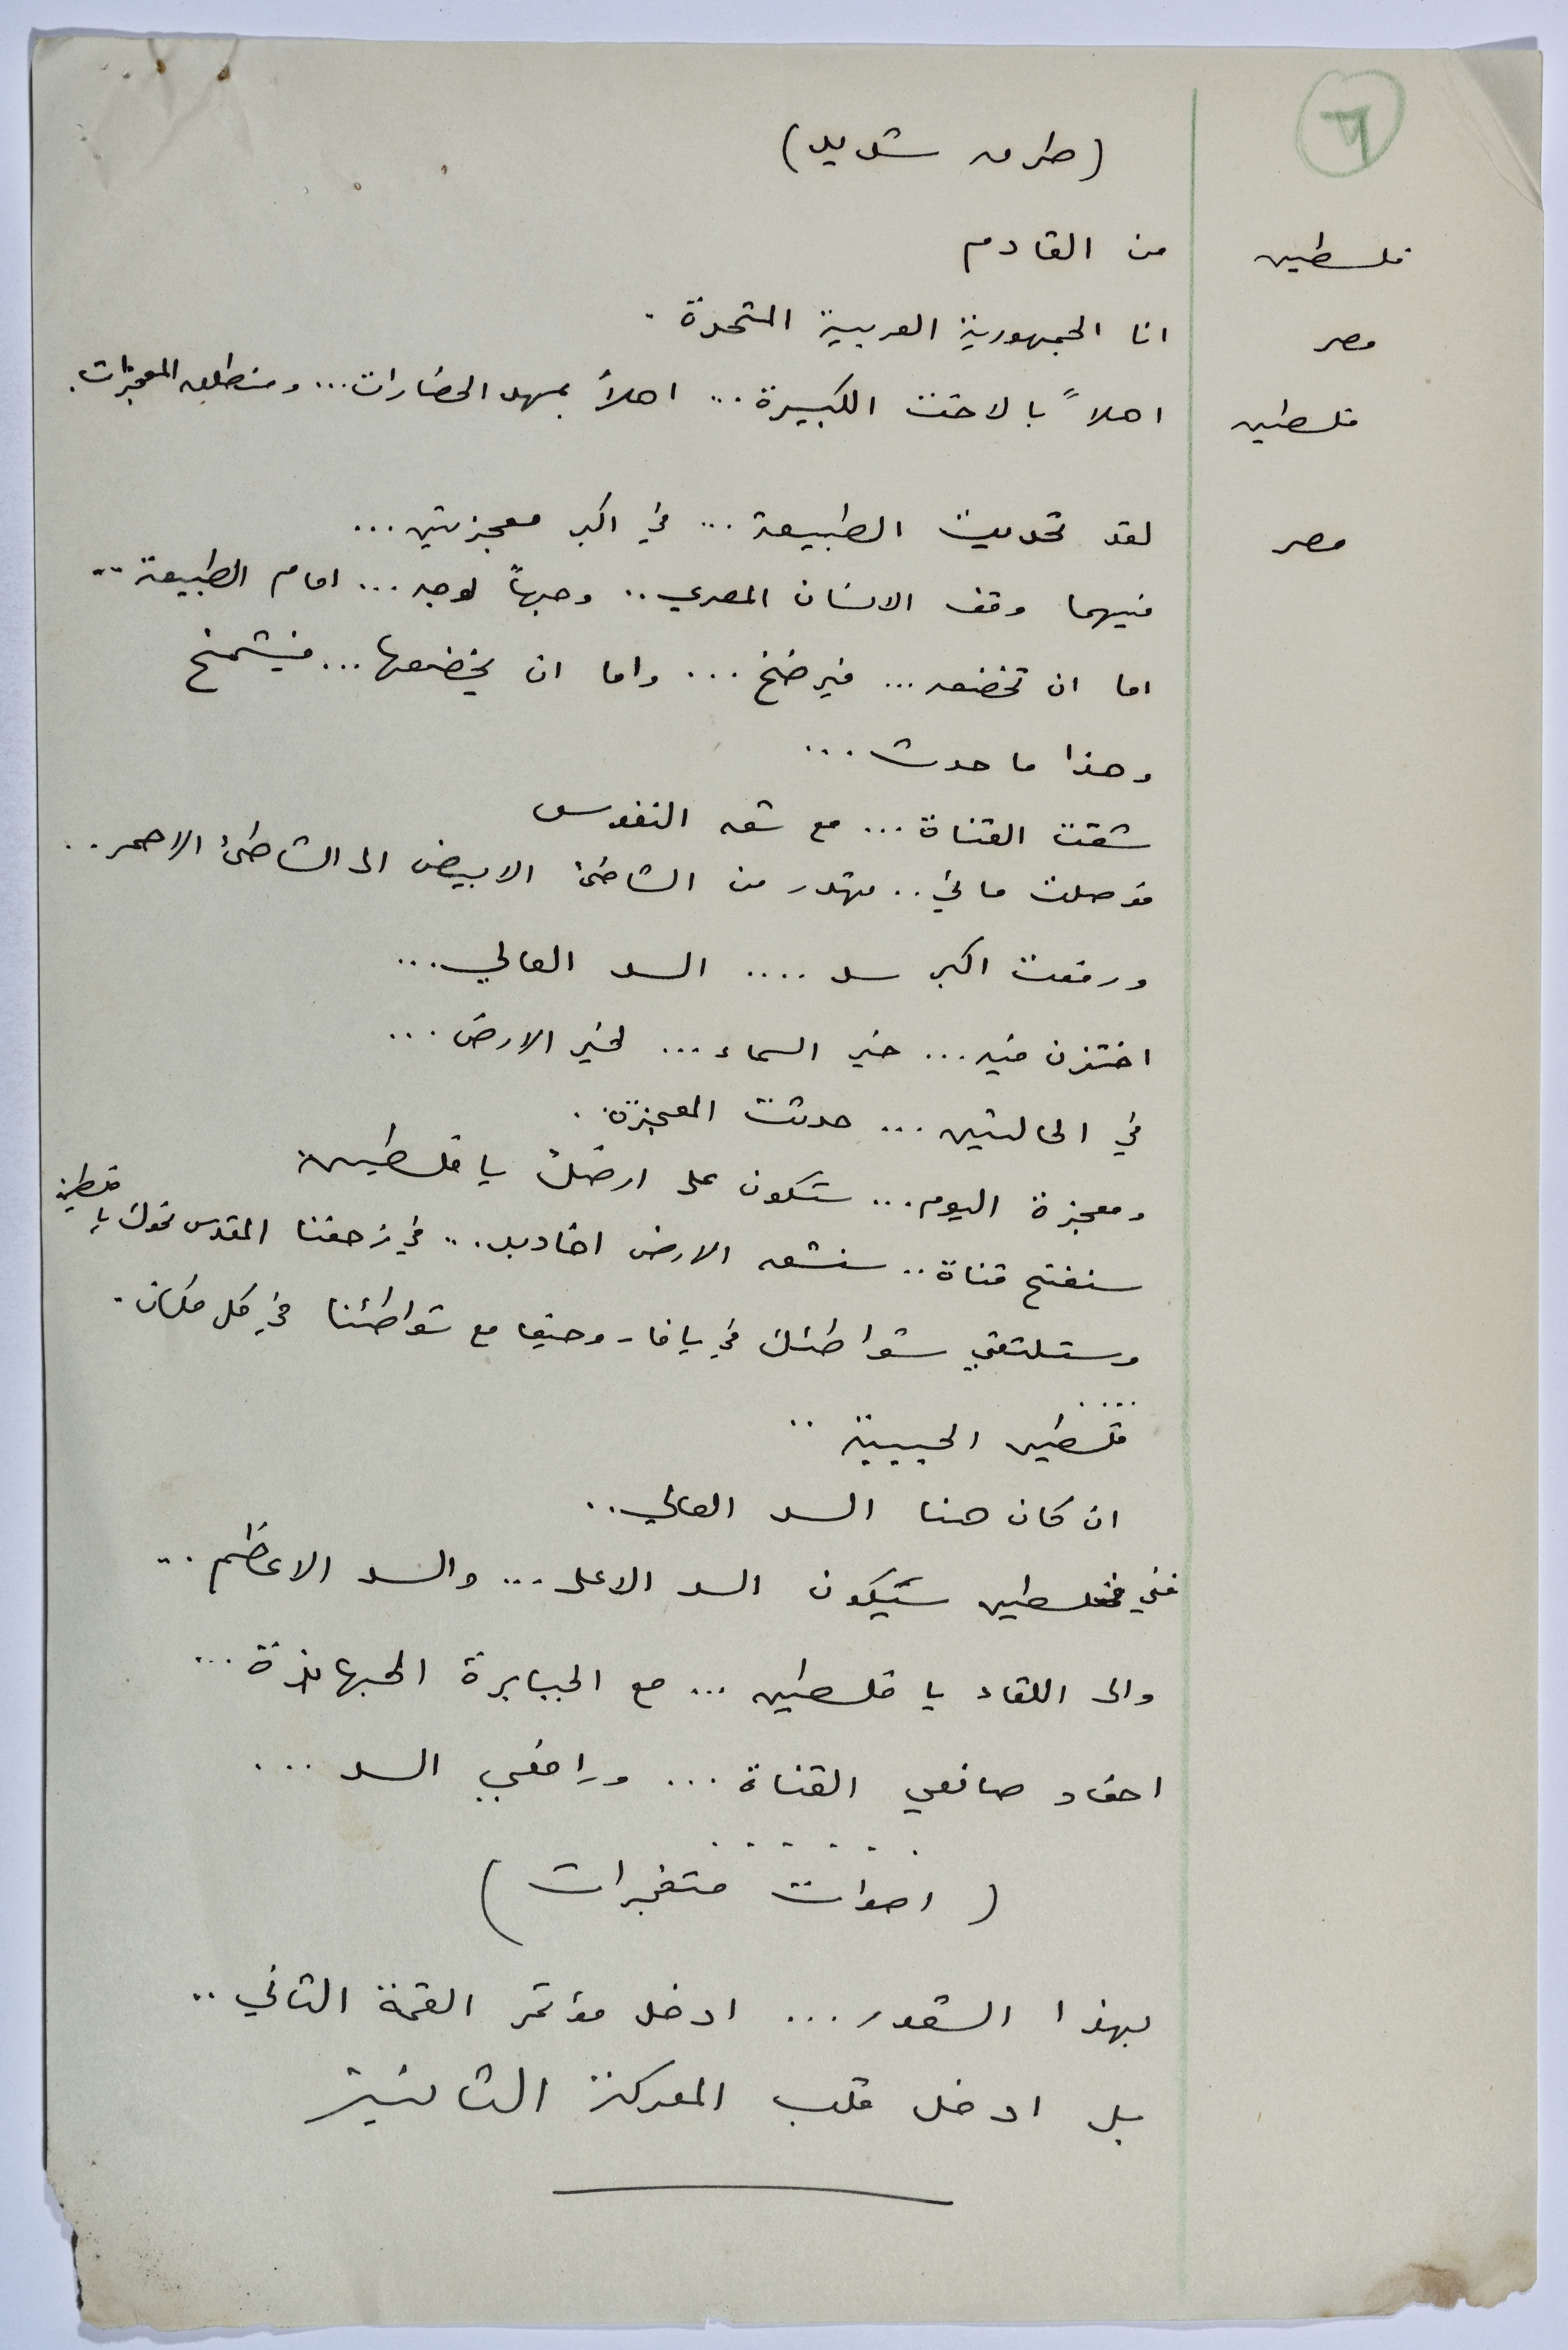 ٦
(طرق شديد)
فلسطين من القادم
مصر انا الجمهورية العربية المتحدة .
فلسطين اهلاً بالاخت الكبيرة ... اهلاً بمهد الحضارات ... ومنطلق المعجزات .
مصر لقد تحديت الطبيعة ... في اكبر معجزتين ...
فيهما وقف الانسان المصري .. وجهاً لوجه ... امام الطبيعة ..
اما ان تخضعه ... فيرضخ ... واما ان يخضعها ... فيشمخ
وهذا ما حدث ...
شقت القناة ... مع شق النفوس
فوصلت مائي .. يهدر من الشاطئ الابيض الى الشاطئ الاحمر ..
ورفعت اكبر سد .... السد العالي ...
اختزن فيه ... خير السماء ... لخير الارض ...
في الحالتين ... حدثت المعجزة .
ومعجزة اليوم ... ستكون على ارضك يا فلسطين
سنفتح قناة .. سنشق الارض اخاديد ... في زحفنا المقدس نحوك يا فلسطين
وستلتقي شواطئك في يافا - وحيفا مع شواطئنا في كل مكان .
....
فلسطين الحبيبة ..
ان كان هنا السد العالي ..
ففي فلسطين سيكون السد الاعلى ... والسد الاعظم ...
والى اللقاء يا فلسطين ... مع الجبابرة الجهابذة ...
احفاد صانعي القناة ... ورافعي السد ...
......
( اصوات متفجرات )
بهذا الشعور ... ادخل مؤتمر القمة الثاني ..
بل ادخل قلب المعركة الثانية